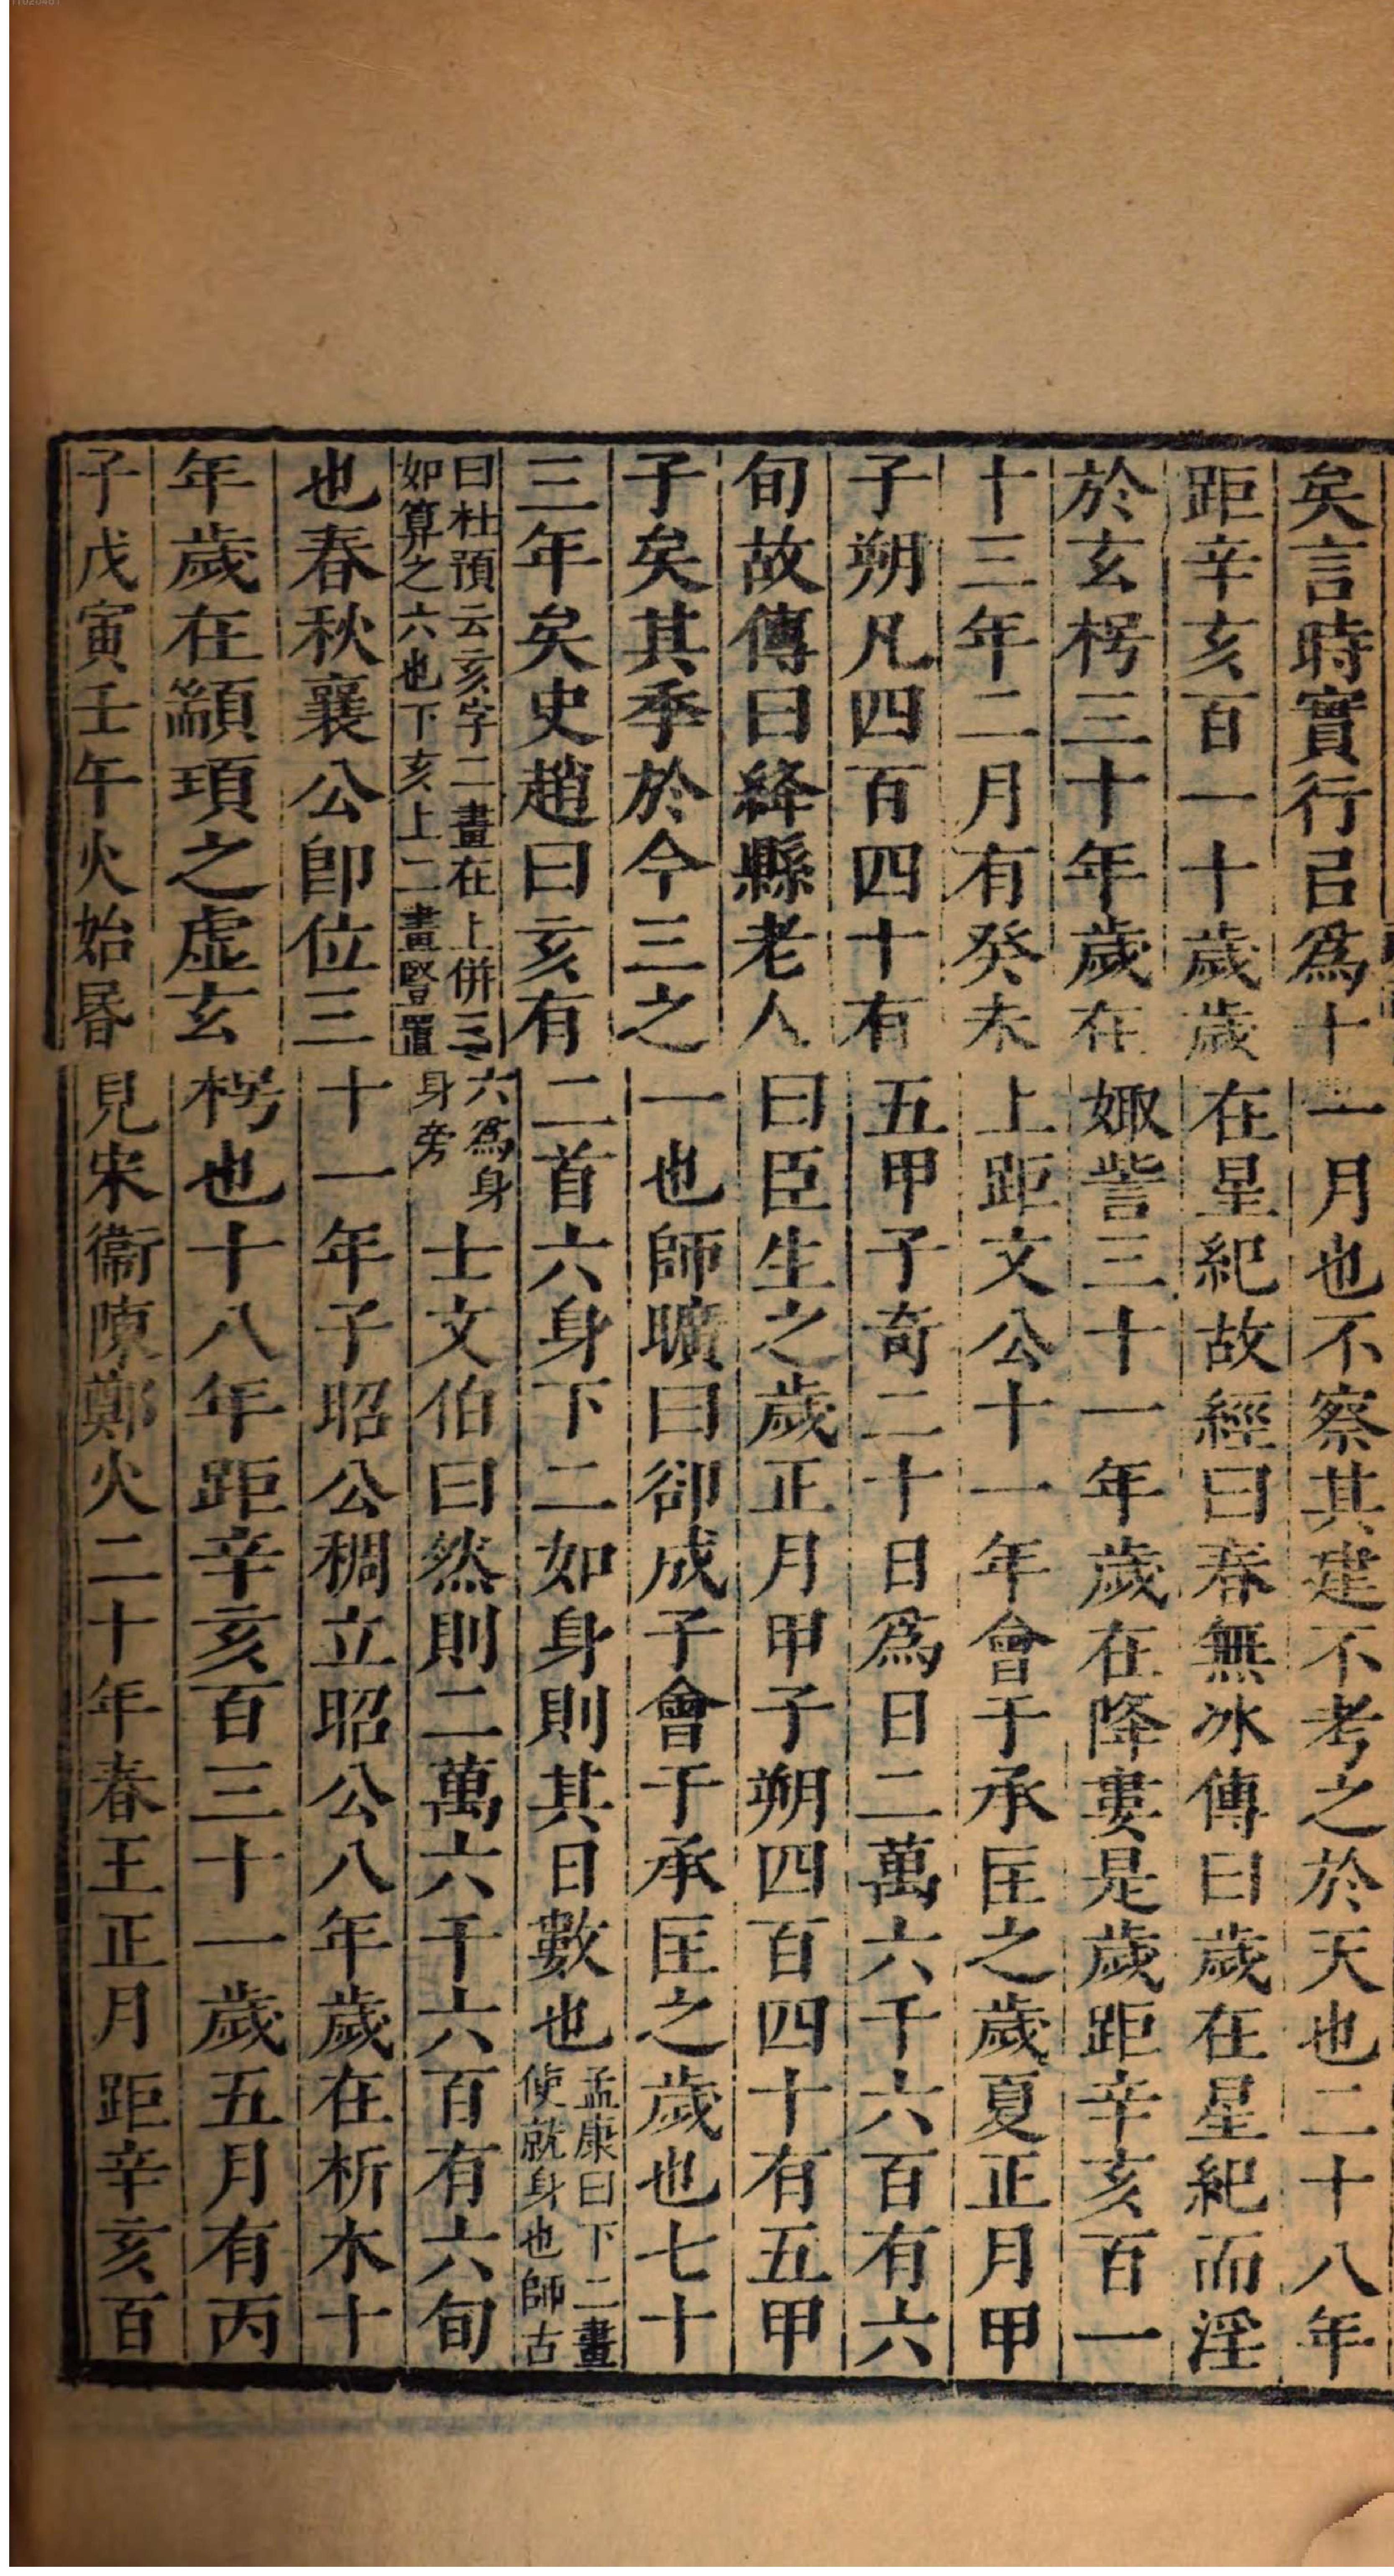 矣言時實行㠯爲十一月也不察其建不考之於天也二十八年
距辛亥百一十歲歲在星紀故經曰春無冰傳曰歲在星紀而淫
於玄枵三十年歲在娵訾三十一年歲在降婁是歲距辛亥百一
十三年二月有癸未上距文公十一年會于承匡之歲夏正月甲
子朔凡四百四十有五甲子奇二十日爲日二萬六千六百有六
旬故傳曰絳縣老人曰臣生之歲正月甲子朔四百四十有五甲
子矣其季於今三之一也師曠曰郤成子會于承匡之歲也七十
三年矣史趙曰亥有二首六身下二如身則其日數也孟康曰下二畫
使就身也師古
曰杜預云亥字二畫在上併三六爲身
如算之六也下亥上二畫豎置身旁士文伯曰然則二萬六千六百有六旬
也春秋襄公卽位三十一年子昭公稠立昭公八年歲在析木十
年歲在顓頊之虛玄枵也十八年距辛亥百三十一歲五月有丙
子戊寅壬午火始昬見宋衞陳鄭火二十年春王正月距辛亥百
11020481